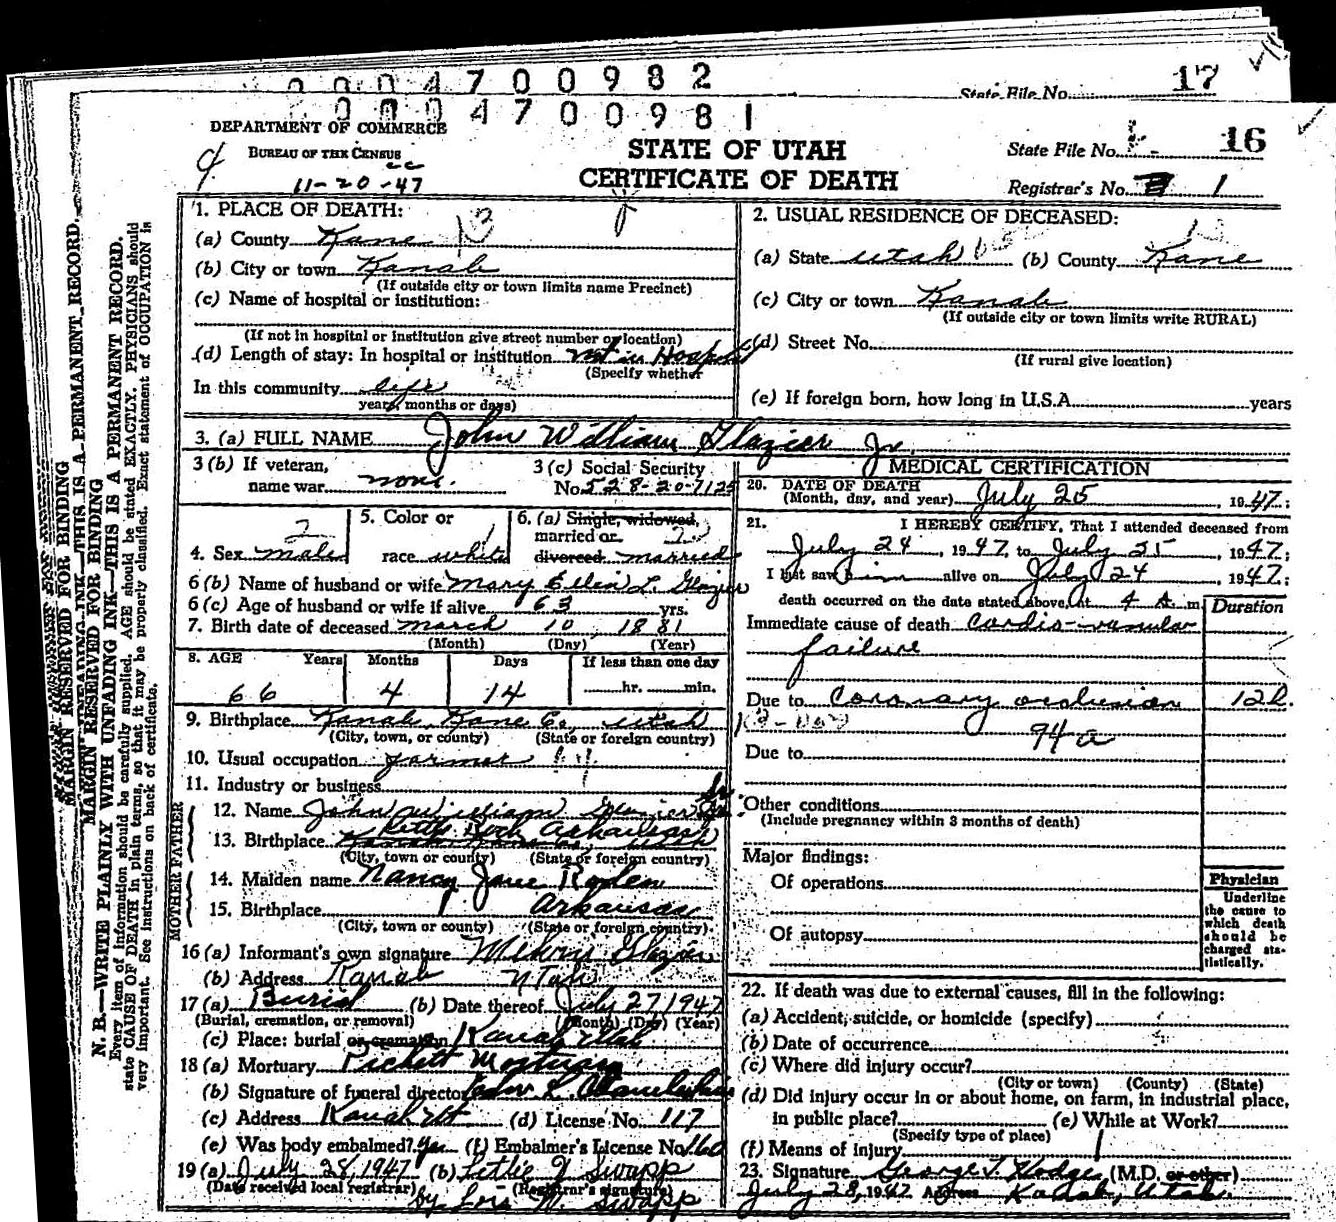 0004700982
State File No. 17
0004700981
DEPARTMENT OF COMMERCE
BUREAU OF THE CENSUS
11-20-47
STATE OF UTAH
CERTIFICATE OF DEATH
State File No. 16
Registrar's No. 1
MARGIN RESERVED FOR BINDING
N. B.—WRITE PLAINLY WITH UNFADING INK—THIS IS A PERMANENT RECORD.
Every item of information should be carefully supplied. AGE should be stated EXACTLY. PHYSICIANS should
state CAUSE OF DEATH in plain terms, so that it may be properly classified. Exact statement of OCCUPATION is
very important. See instructions on back of certificate.
1. PLACE OF DEATH:
(a) County Kane
(b) City or town Kanab
(If outside city or town limits name Precinct)
(c) Name of hospital or institution:
(If not in hospital or institution give street number or location)
(d) Length of stay: In hospital or institution not in Hospital
(Specify whether
In this community life
years, months or days)
2. USUAL RESIDENCE OF DECEASED:
(a) State Utah (b) County Kane
(c) City or town Kanab
(If outside city or town limits write RURAL)
(d) Street No.
(If rural give location)
(e) If foreign born, how long in U.S.A. years
3. (a) FULL NAME John William Glazier Jr.
3 (b) If veteran,
name war none.
3 (c) Social Security
No. 528-20-7125
4. Sex male
5. Color or
race white
6. (a) Single, widowed,
married or
divorced married
6 (b) Name of husband or wife Mary Ellen L. Glazier
6 (c) Age of husband or wife if alive 63 yrs.
7. Birth date of deceased march 10, 1881
(Month) (Day) (Year)
8. AGE Years Months Days If less than one day
66 4 14 hr. min.
9. Birthplace Kanab, Kane Co., Utah
(City, town, or county) (State or foreign country)
10. Usual occupation farmer
11. Industry or business
FATHER
12. Name John William Glazier Sr.
13. Birthplace Little Rock Arkansas
(City, town or county) (State or foreign country)
MOTHER
14. Maiden name Nancy Jane
15. Birthplace Arkansas
(City, town or county) (State or foreign country)
16 (a) Informant's own signature Glazier
(b) Address Kanab Utah
17 (a) Burial (b) Date thereof July 27, 1947
(Burial, cremation, or removal) (Month) (Day) (Year)
(c) Place: burial or cremation Kanab Utah
18 (a) Mortuary Pickett Mortuary
(b) Signature of funeral director
(c) Address Kanab Ut (d) License No. 117
(e) Was body embalmed? Yes (f) Embalmer's License No. 160
19 (a) July 28, 1947 (b) Lettie J Swapp
(Date received local registrar) (Registrar's signature)
by Lois W. Swapp
MEDICAL CERTIFICATION
20. DATE OF DEATH
(Month, day, and year) July 25, 1947;
21. I HEREBY CERTIFY, That I attended deceased from
July 24, 1947, to July 25, 1947;
I last saw him alive on July 24, 1947;
death occurred on the date stated above, at 4 A. m.
Duration
Immediate cause of death Cardio-vascular
failure
Due to Coronary occlusion 12h.
94a
Due to
Other conditions
(Include pregnancy within 3 months of death)
Major findings:
Of operations
Of autopsy
Physician
Underline
the cause to
which death
should be
charged sta-
tistically.
22. If death was due to external causes, fill in the following:
(a) Accident, suicide, or homicide (specify)
(b) Date of occurrence
(c) Where did injury occur?
(City or town) (County) (State)
(d) Did injury occur in or about home, on farm, in industrial place,
in public place? (e) While at Work?
(Specify type of place)
(f) Means of Injury
23. Signature George T. Hodge (M.D. or other)
July 28, 1947 Address Kanab, Utah.